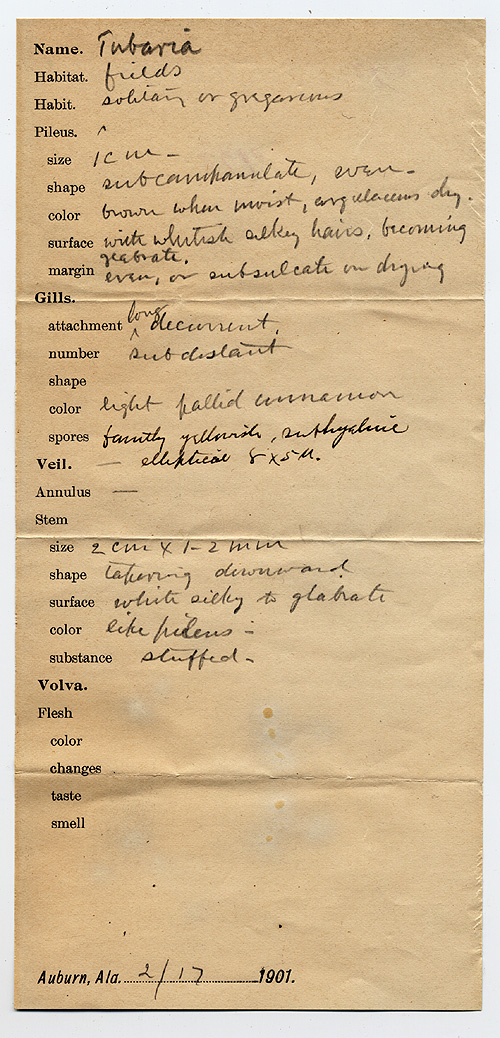 Name. Tubaria
Habitat. fields
Habit. solitary or gregarious
Pileus. ^
size 1 cm -
shape subcampanulate, even -
color brown when moist, argilaceus dry.
surface with whitish silky hairs, becoming
glabrate.
margin even, or subsulcate on drying
Gills.
long
attachment ^ decurrent,
number subdistant
shape
color light pallid cinnamon
spores faintly yellowish, subhyaline
Veil. — elliptical 8 x 5 µ.
Annulus —
Stem
size 2 cm x 1-2 mm
shape tapering downward
surface white silky to glabrate
color like pileus -
substance stuffed -
Volva.
Flesh
color
changes
taste
smell
Auburn, Ala. 2/17 1901.